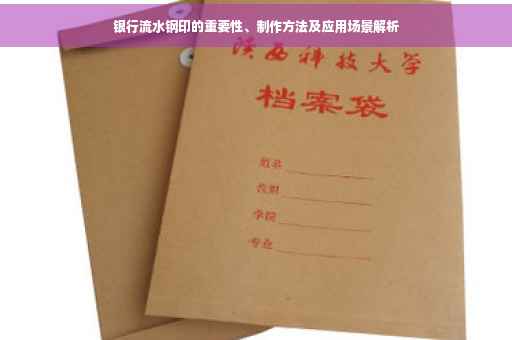 银行流水钢印的重要性、制作方法及应用场景解析
陕西科技大学
档案袋
姓名
学院
专业